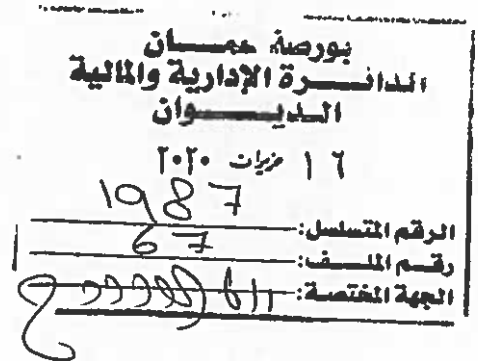 بورصة عمان
الدائرة الإدارية والمالية
الديوان
١٦ حزيران ٢٠٢٠
الرقم المتسلسل: 1987
رقم الملف: 67
الجهة المختصة: